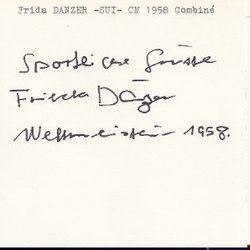 Frida DANZER -SUI- CM 1958 Combiné
Sportliche Grüsse
Frieda Dänzer
Weltmeisterin 1958.